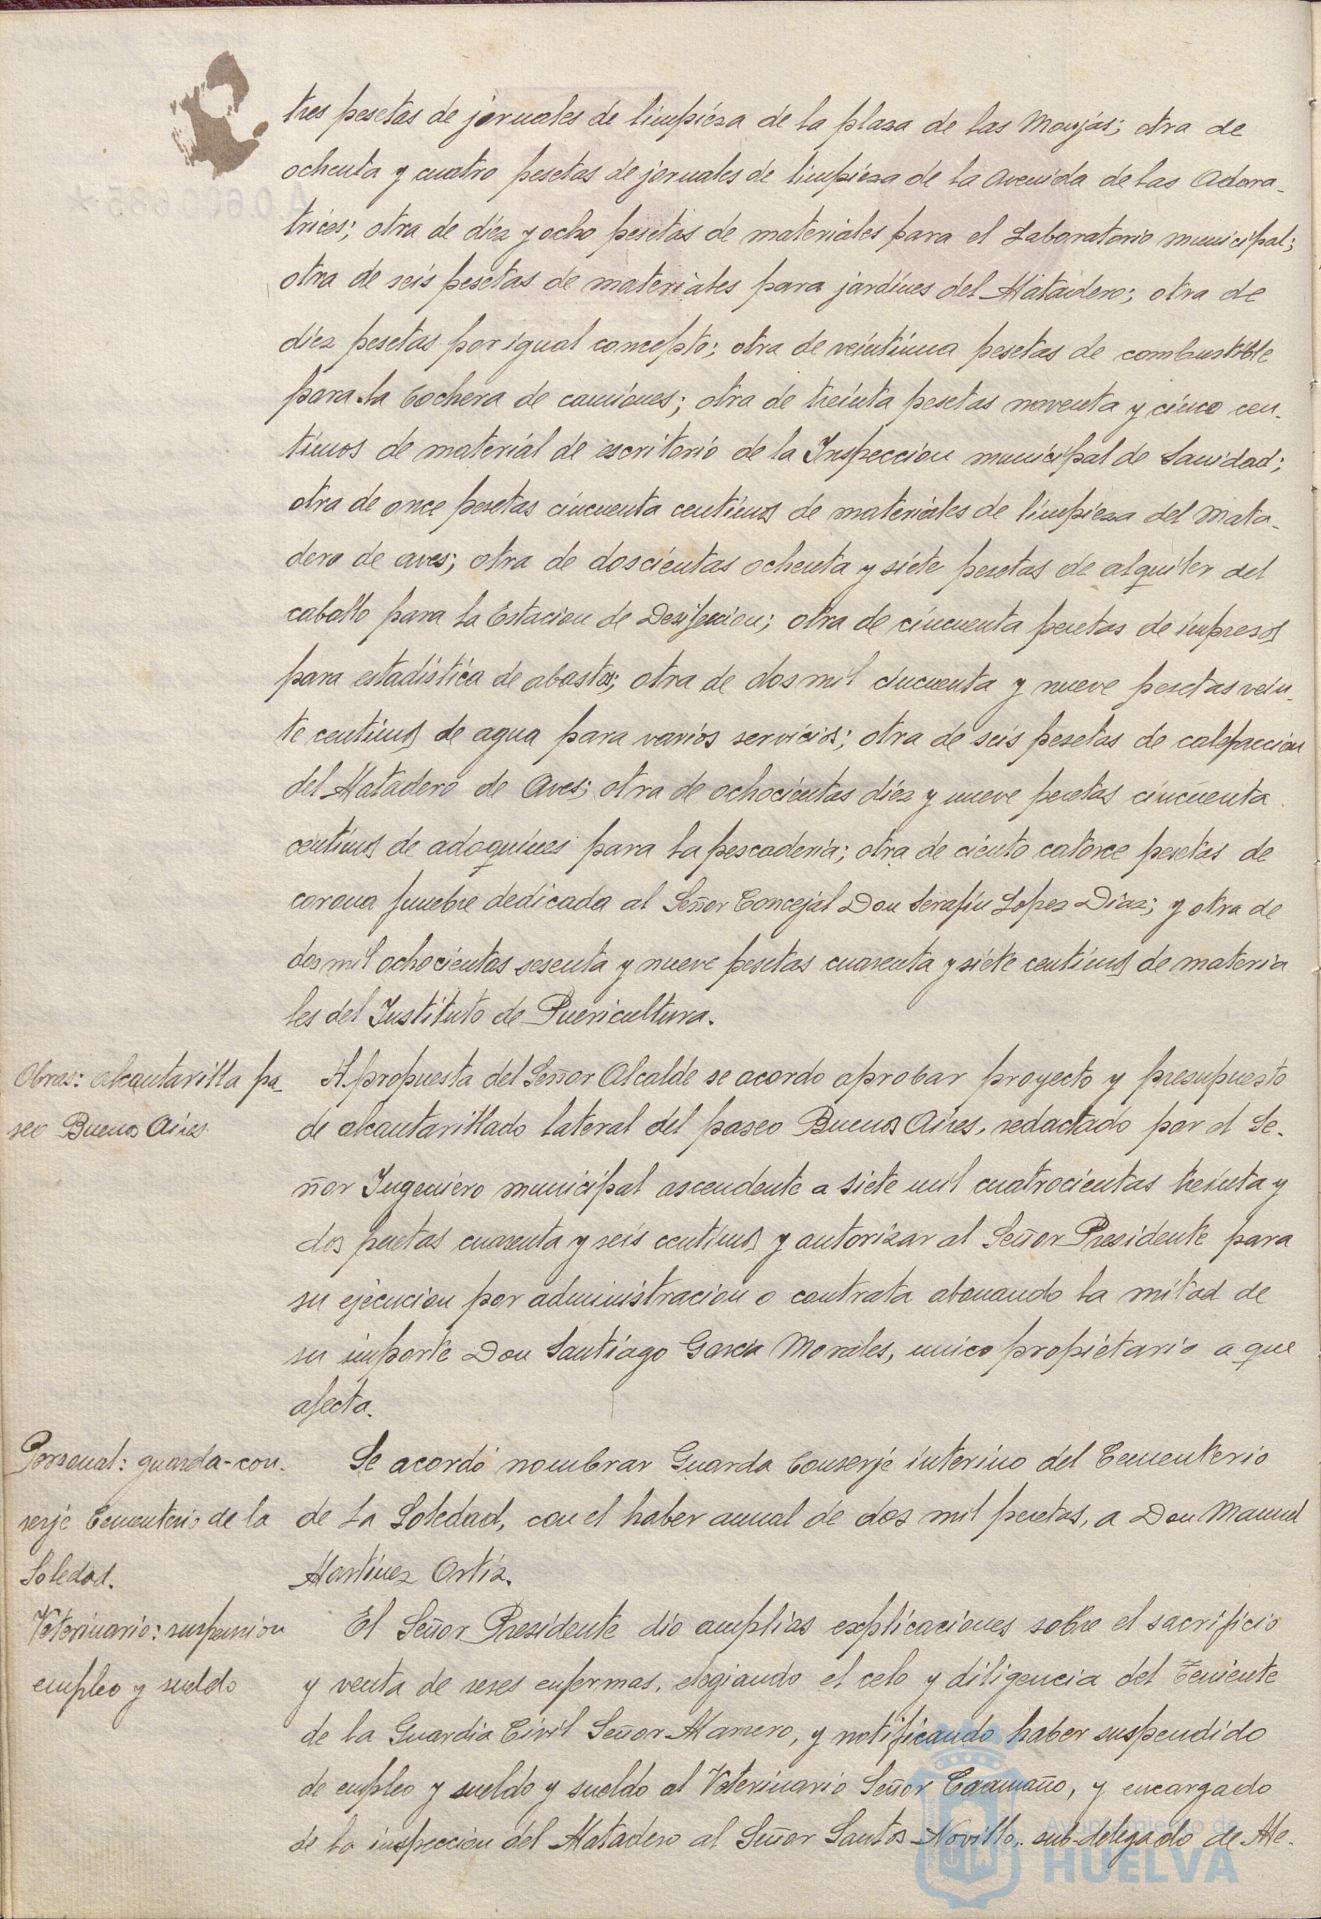 tres pesetas de jornales de limpiéza de la plaza de las Monjas; otra de
ochenta y cuatro pesetas de jornales de limpiéza de la Avenida de las Adora-
trices; otra de diéz y ocho pesetas de materiales para el Laboratorio municipal;
otra de seis pesetas de materiales para jardines del Matadero; otra de
diéz pesetas por igual concepto; otra de veintiuna pesetas de combustible
para la Cochera de camiones; otra de treinta pesetas noventa y cinco cen-
timos de material de escritorio de la Inspeccion municipal de Sanidad;
otra de once pesetas cincuenta centimos de materiales de limpieza del Mata-
dero de aves; otra de doscientas ochenta y siete pesetas de alquiler del
caballo para la Estacion de Desifeccion; otra de cincuenta pesetas de impresos
para estadistica de abastos; otra de dos mil cincuenta y nueve pesetas vein-
te centimos de agua para varios servicios; otra de seis pesetas de calefaccion
del Matadero de Aves; otra de ochocientas diéz y nueve pesetas cincuenta
centimos de adoquines para la pescaderia; otra de ciento catorce pesetas de
corona funebre dedicada al Señor Concejal Don Serafin Lopez Diaz; y otra de
dos mil ochocientas sesenta y nueve pesetas cuarenta y siéte centimos de materia
les del Instituto de Puericultura.
Obras: alcantarilla pa-
seo Buenos Aires
A propuesta del Señor Alcalde se acordo aprobar proyecto y presupuesto
de alcantarillado lateral del paseo Buenos Aires, redactado por el Se-
ñor Ingeniero municipal ascendente a siete mil cuatrocientas treinta y
dos pesetas cuarenta y seis centimos y autorizar al Señor Presidente para
su ejecucion por administracion o contrata abonando la mitad de
su importe Don Santiago Garcia Morales, unico propietario a que
afecta.
Personal: guarda-con-
serje Cementerio de la
Soledad.
Se acordó nombrar Guarda Conserje interino del Cementerio
de la Soledad, con el haber anual de dos mil pesetas, a Don Manuel
Martinez Ortiz.
Veterinario: suspension
empleo y sueldo
El Señor Presidente dio amplias explicaciones sobre el sacrificio
y venta de reses enfermas, elogiando el celo y diligencia del Teniente
de la Guardia Civil Señor Marrero, y notificando haber suspendido
de empleo y sueldo y sueldo al Veterinario Señor Caamaño, y encargado
de la inspeccion del Matadero al Señor Santos Novillo, sub-delegado de Me-
Ayuntamiento de
HUELVA